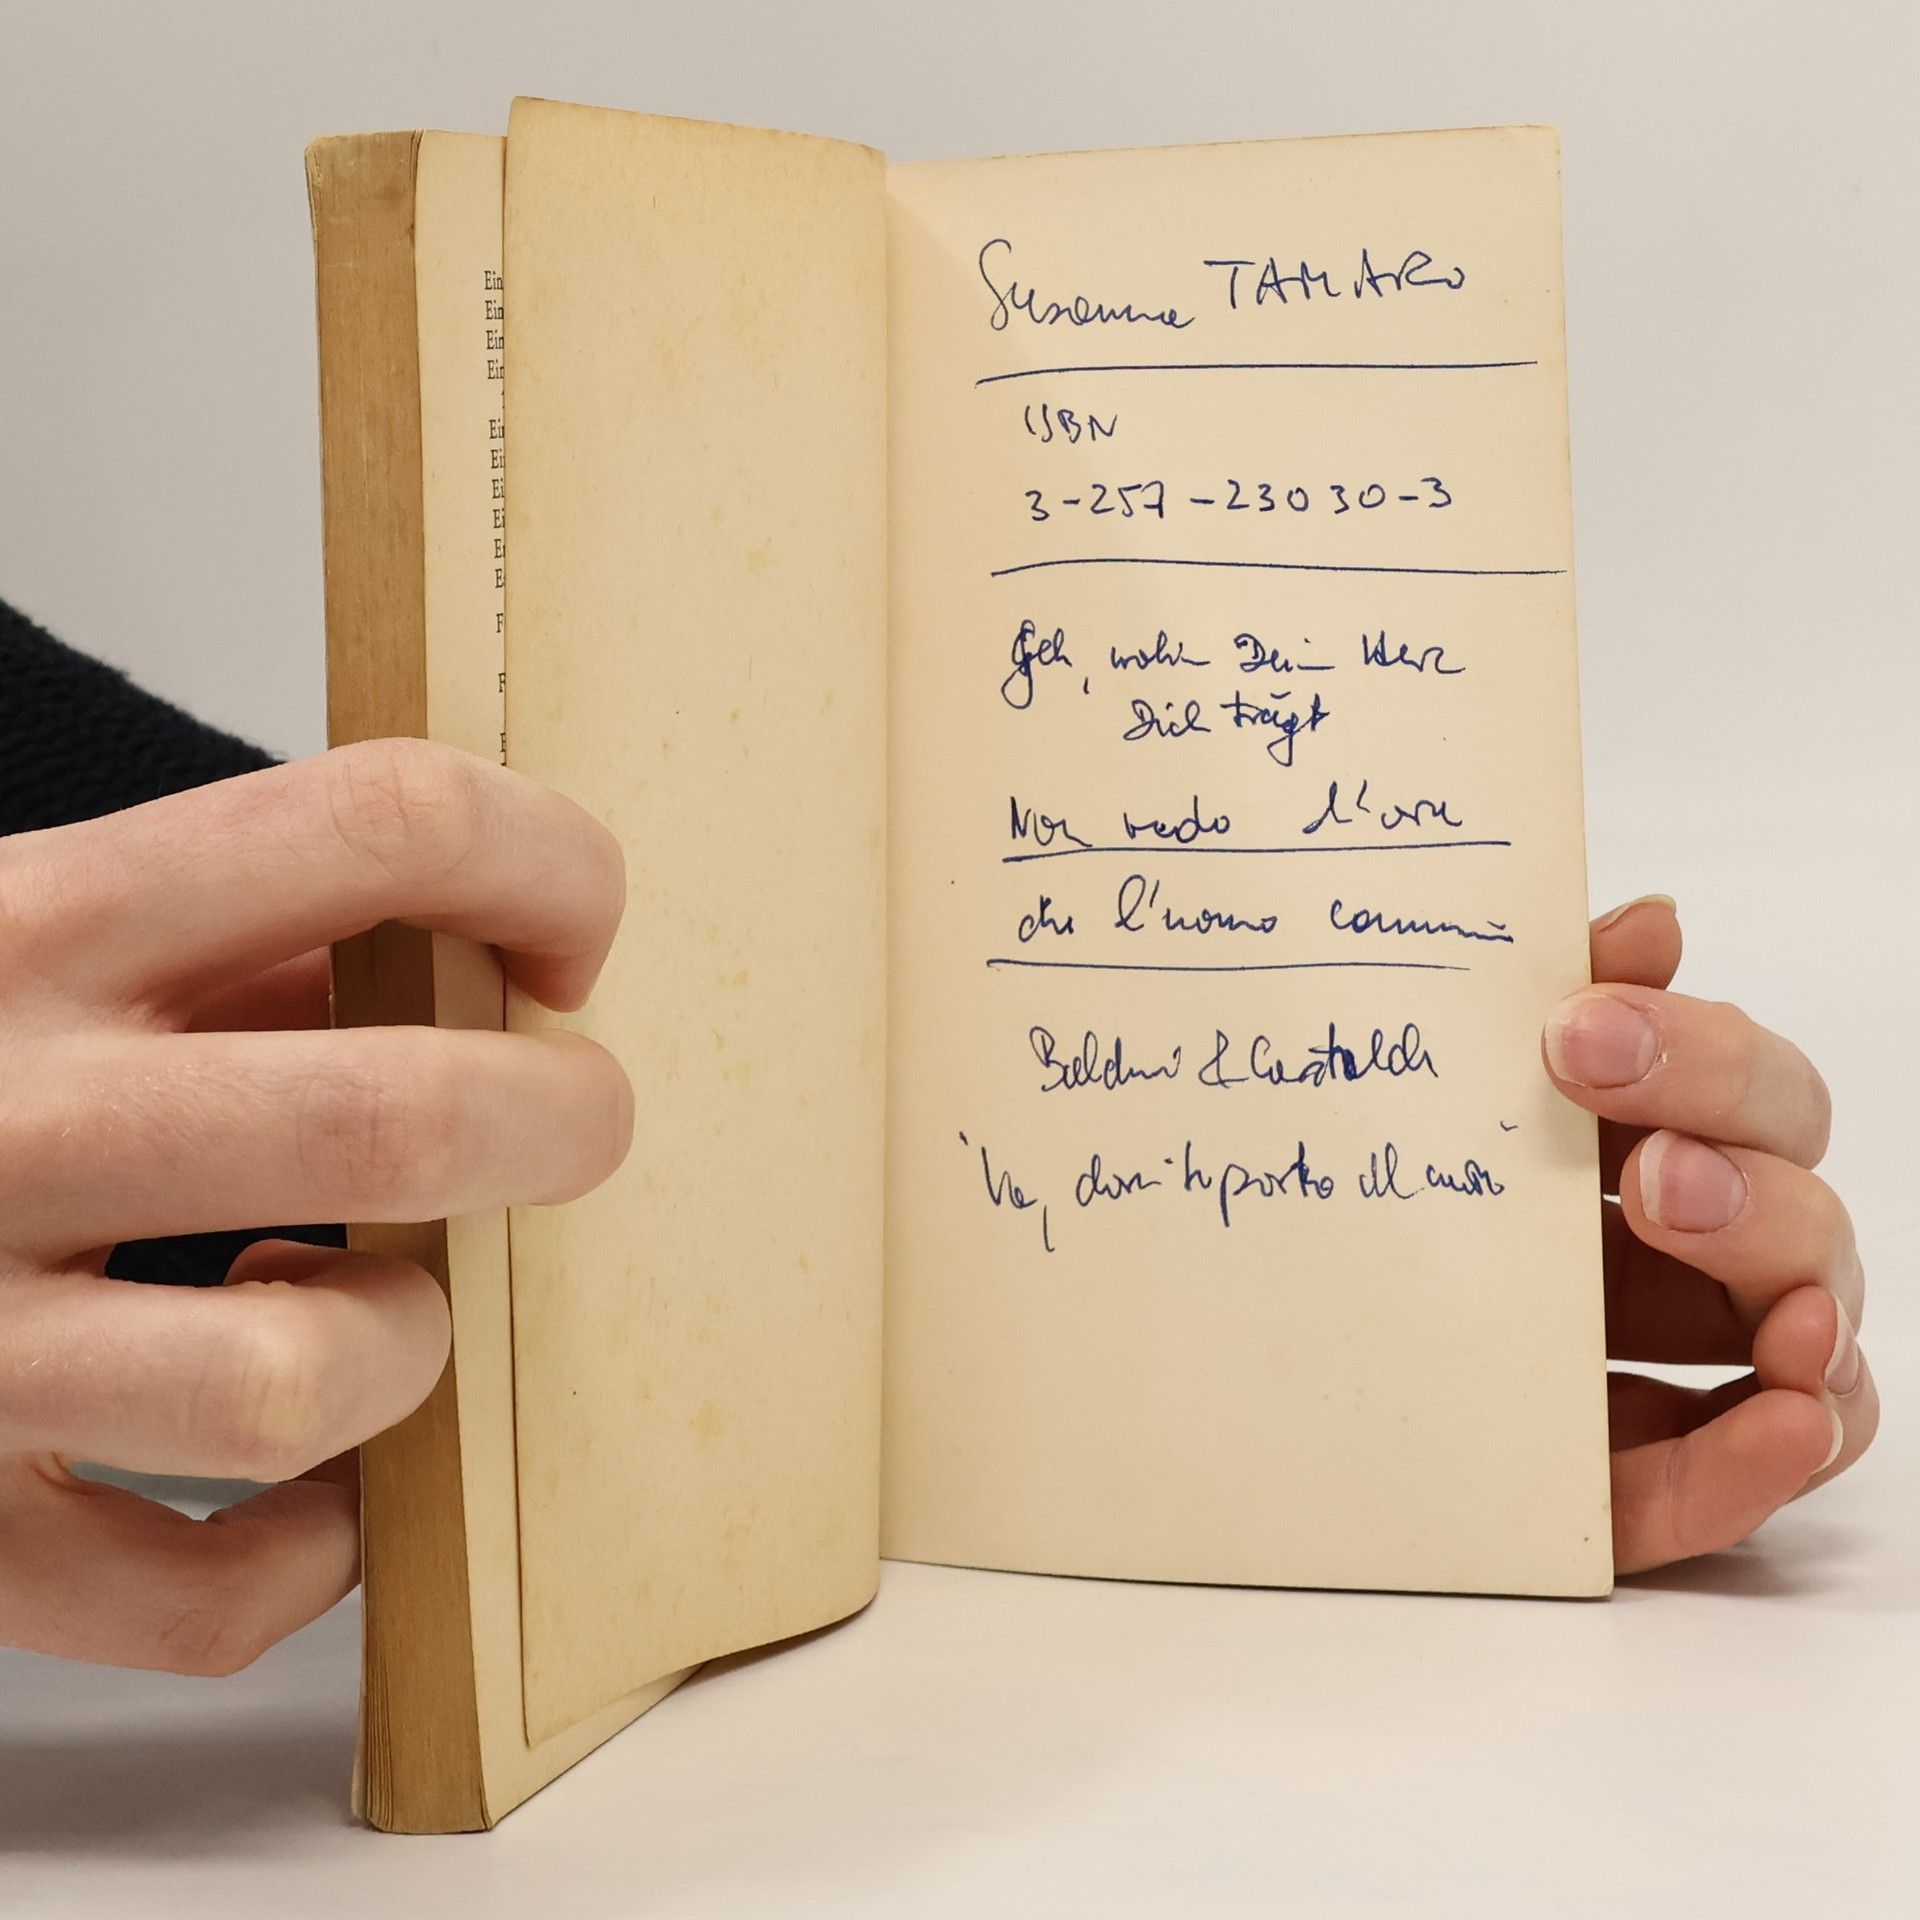 Ein
Ein
Ein
Ein
Ein
Ein
Susanna TAMARO
ISBN
3-257-23030-3
Geh, wohin Dein Herz
Dich trägt
Non vedo l'ora
che l'uomo
Baldini & Castoldi
"Va, dove ti porta il cuore"